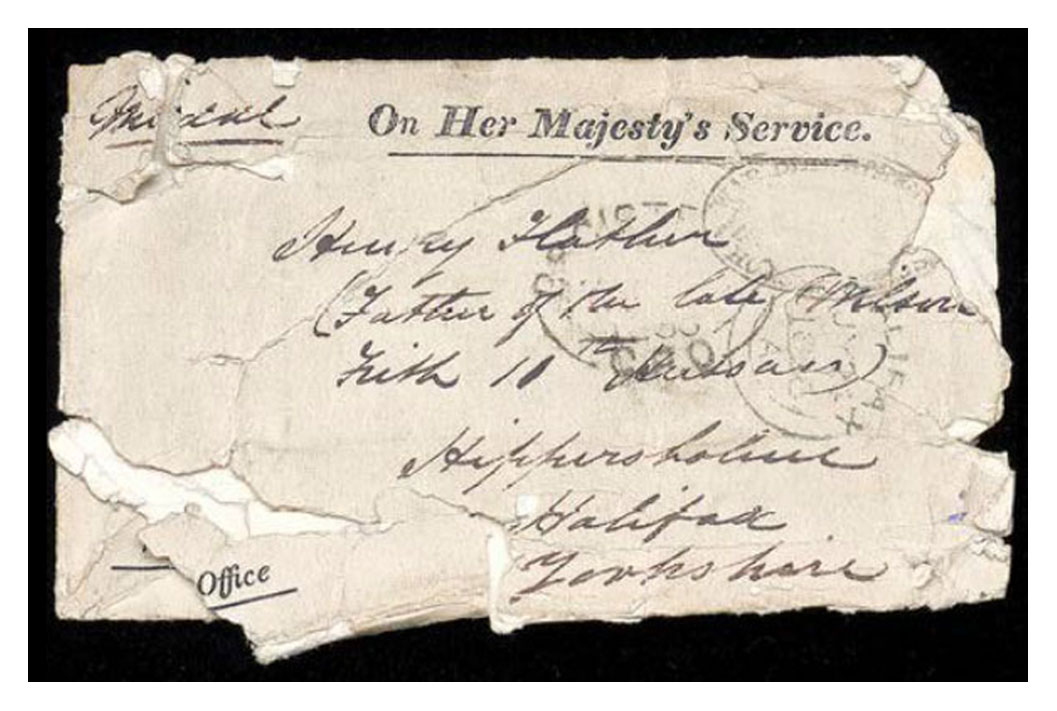 Medal
On Her Majesty's Service.
Henry Flather
(Father of the late Wilson
Frith 10th Hussars)
Hippersholme
Halifax
Yorkshire
Office